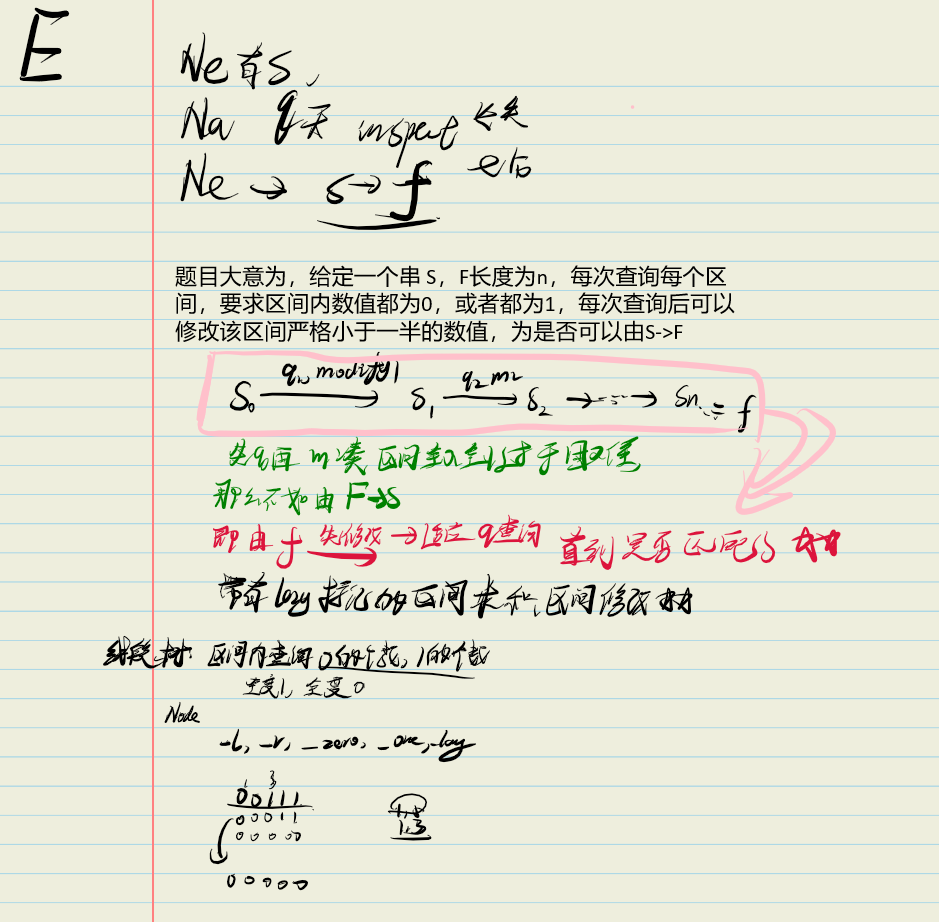 E
Ne 有 S,
Na q天 inspect 长度
Ne → s → f
题目大意为，给定一个串 S，F长度为n，每次查询每个区
间，要求区间内数值都为0，或者都为1，每次查询后可以
修改该区间严格小于一半的数值，为是否可以由S->F
S₀ → S₁ q₂ m₂ → S₂ → ... → Sn = f
那么不如由 F→S
即由 f 先修改 → q查询
带有 lazy 标记的区间求和，区间修改树
线段树: 区间内查询 0的个数, 1的个数
全变1, 全变0
Node
-l, -r, _zero, _one, -lazy
1 3
0 0 1 1 1
0 0 0 1 1
0 0 0 0 0
1,3
0 0 0 0 0